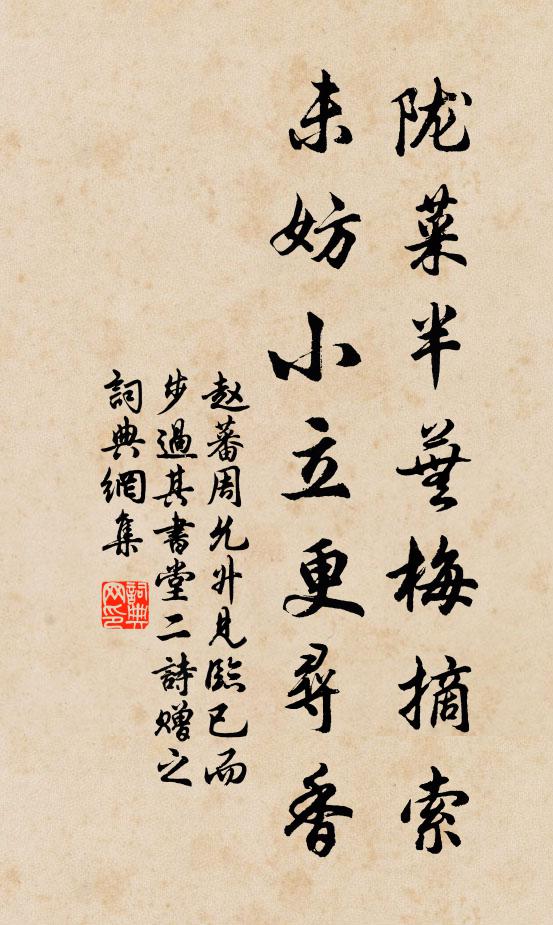 陇菜半蕪梅摘索
未妨小立更尋香
赵蕃周允升見臨已而
步過其書堂二詩赠之
詞典網集
詞典网印